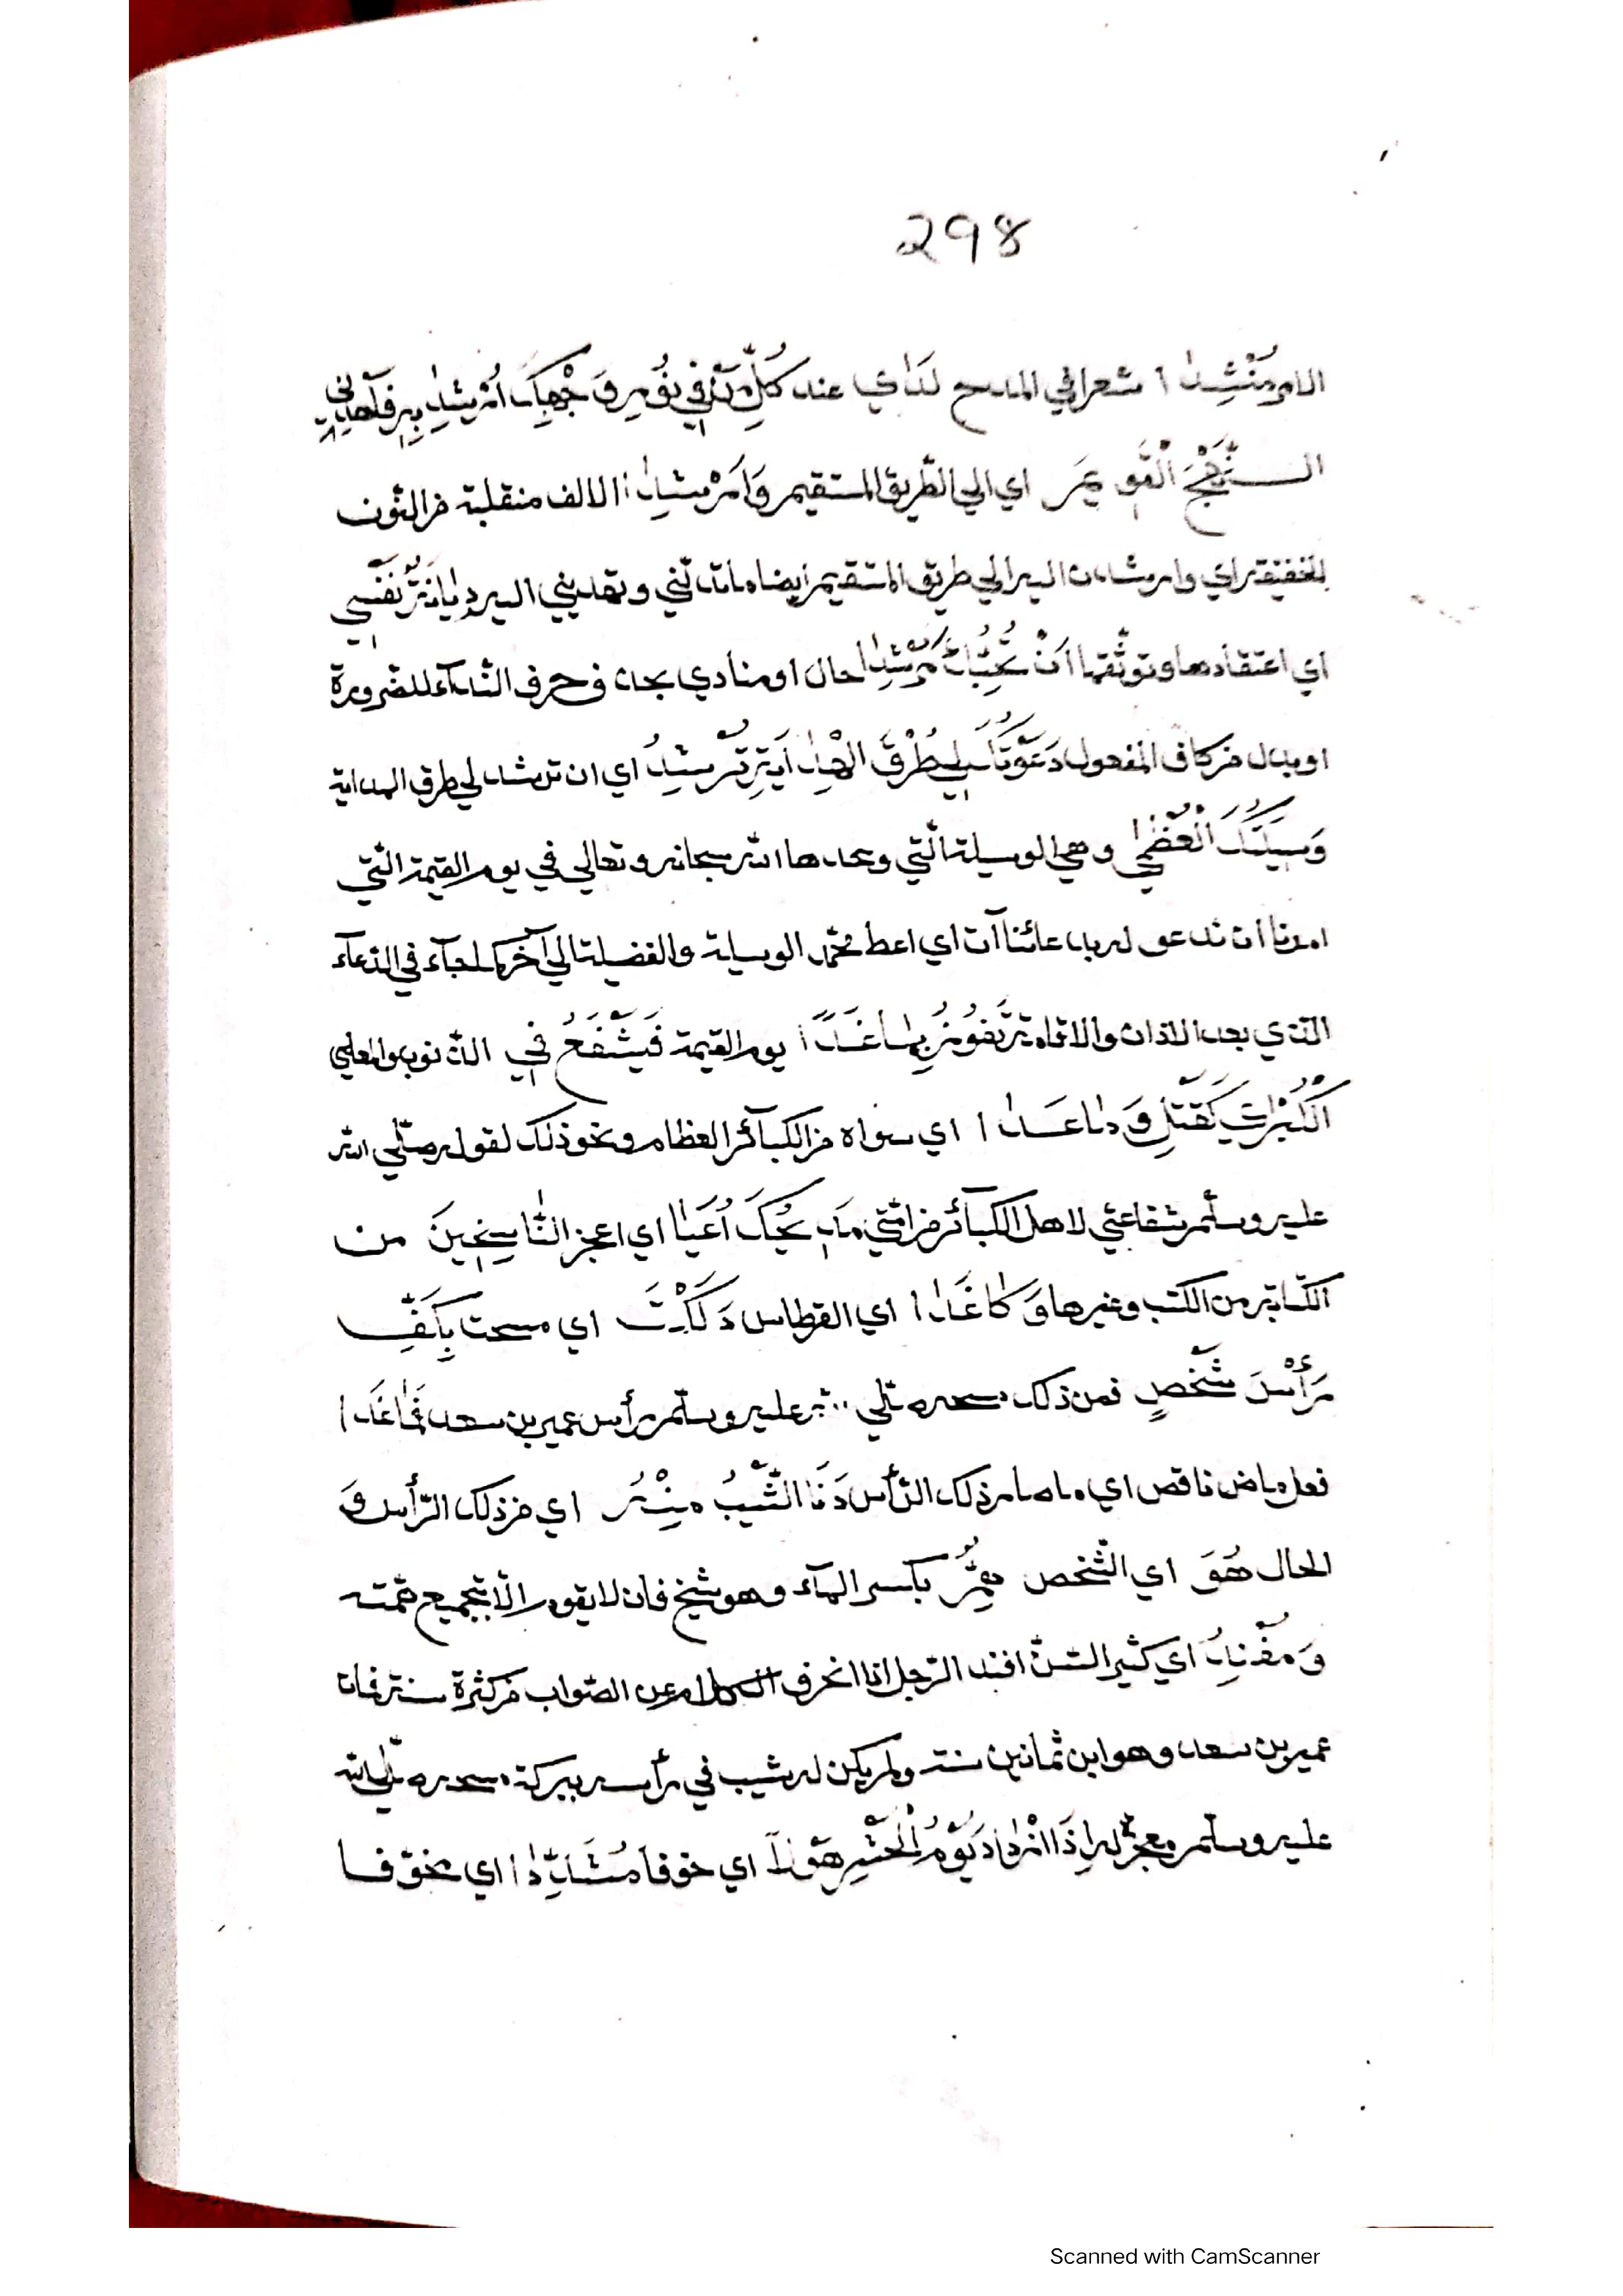 298
الامر مُنْشِدًا شعرا في المدح لَدَي اي عند كُلِّ مَنْ في نُورِ وَجْهِكَ اُرْشِدُ بِهِ فَاهْدِنِي
النَّهْجَ الْقَوِيمَ اي الي الطّريق المستقيم وَاَرْشِدَا الالف منقلبة من النّون
الخفيفة اي وارشدن اليه الي طريق المستقيم ايضا وتهديني اليه نَفْسِي
اي اعتقادها وتوثّقها اَنْ تُحِبَّكَ مُرْشِدًا حال او منادي بحذف حرف النداء للضرورة
او بدل من كاف المفعول دَعَوْتَكَ لِي طُرْقَ الْهِدَايَةِ تُرْشِدُ اي ان ترشد لي طرق الهداية
وَسِيلَتُكَ الْعُظْمٰي وهي الوسيلة الّتي وعدها الله سبحانه وتعالي في يوم القيمة الّتي
امرنا ان ندعو له بدعائنا آت اي اعط محمد الوسيلة والفضيلة الي آخره كما جآء في الدّعآء
الّذي بعد الاذان والاقامة تَفُوزُ بِهَا غَدًا يوم القيمة فَيَشْفَعُ فِي الذنوب والمعاصي
الْكُبْرٰي كَقَتْلٍ وَمَا عَدَا اي سواه من الكبآئر العظام ونحو ذلك لقوله صلّي الله
عليه وسلّم شفاعتي لاهل الكبآئر من امّتي مَدِيحُكَ اَعْيَا اي اعجز النَّاسِخِينَ من
الكتابة من الكتب وغيرها وَكَاغَدَا اي القرطاس دَلَكْتَ اي مسحت بِكَفٍّ
رَأْسَ شَخْصٍ فمن ذلك مسحه صلّي الله عليه وسلّم رأس عمير بن سعد فَمَا غَدَا
فعل ماض ناقص اي ما صار ذلك الرّأس دَنَا الشَّيْبُ مِنْهُ اي من ذلك الرّأس وَ
الحال هُوَ اي الشّخص هِمٌّ بكسر الهآء وهو شيخ فان لا يقوم الّا بتجميع همّته
وَمُفْنِدُ اي كثير السّنّ افند الرّجل اذا انحرف الكلام عن الصّواب من كثرة سنه فمات
عمير بن سعد وهو ابن ثمانين سنة ولم يكن له شيب في رأسه ببركة مسحه صلّي الله
عليه وسلّم معجزة له اِذَا ازْدَادَ يَوْمُ الْحَشْرِ هَوْلًا اي خوفا مُشَدِّدًا اي مخوّفا
Scanned with CamScanner